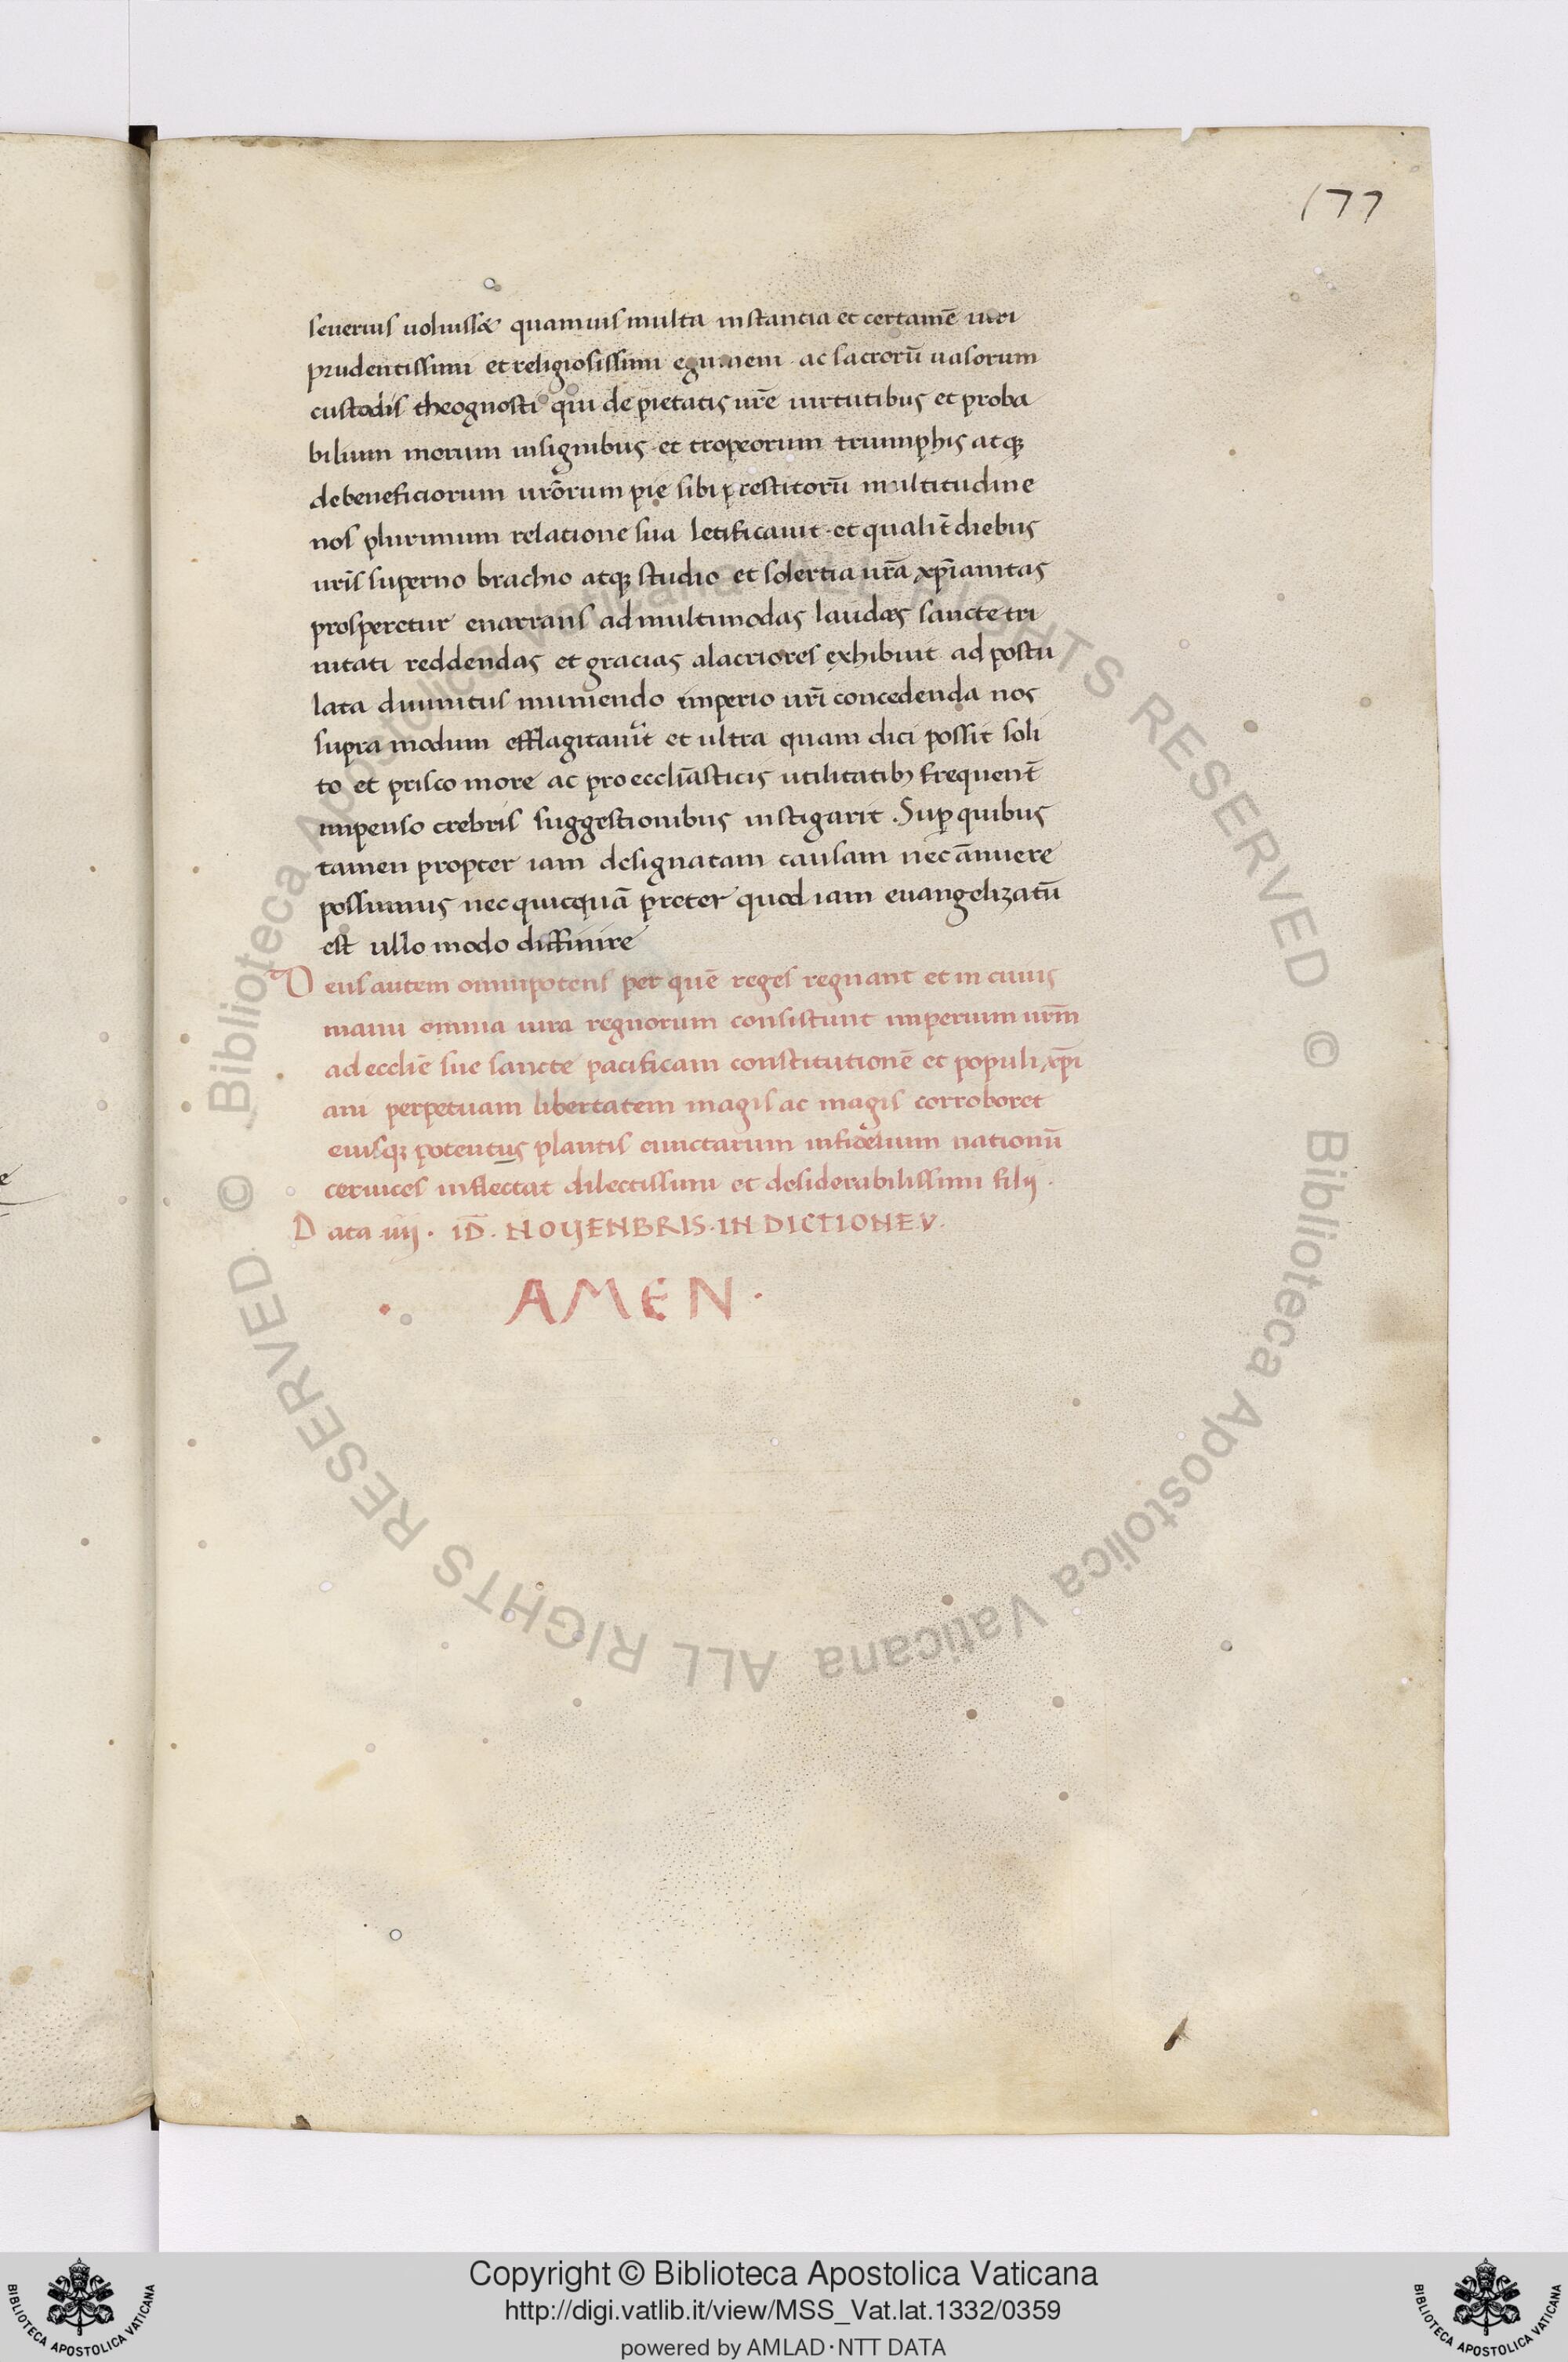 177
seuerius uoluisse quamuis multa instantia et certamē uiri
prudentissimi et religiosissimi egumeni ac sacrorū uasorum
custodis theognosti qui de pietatis urē uirtutibus et proba
bilium morum insignibus et tropeorum triumphis atq;
de beneficiorum urōrum pie sibi prestitorū multitudine
nos plurimum relatione sua letificauit et qualit̄ diebus
uris̄ superno brachio atq; studio et solertia urā xp̄ianitas
prosperetur enarrans ad multimodas laudes sancte tri
nitati reddendas et gracias alacriores exhibuit ad postu
lata diuinitus muniendo imperio urī concedenda nos
supra modum efflagitauīt et ultra quam dici possit soli
to et prisco more ac pro eccliāsticis utilitatib; frequent̄
impenso crebris suggestionibus instigarit. Sup̄ quibus
tamen propter iam designatam causam nec ānuere
possumus nec quicquā preter quod iam euangelizatū
est ullo modo diffinire
Deus autem omnipotens per quē reges regnant et in cuius
manu omnia iura regnorum consistunt imperium urm̄
ad eccliē sue sancte pacificam constitutionē et populi xp̄i
ani perpetuam libertatem magis ac magis corroboret
eiusq; potentius plantis cunctarum infidelium nationū
ceruices inflectat dilectissimi et desiderabilissimi filij.
Data .iiij. ID̄. NOUENBRIS. INDICTIONE V.
. AMEN .
Biblioteca Apostolica Vaticana ALL RIGHTS RESERVED ©
Biblioteca Apostolica Vaticana ALL RIGHTS RESERVED ©
Copyright © Biblioteca Apostolica Vaticana
http://digi.vatlib.it/view/MSS_Vat.lat.1332/0359
powered by AMLAD·NTT DATA
BIBLIOTECA APOSTOLICA VATICANA
BIBLIOTECA APOSTOLICA VATICANA